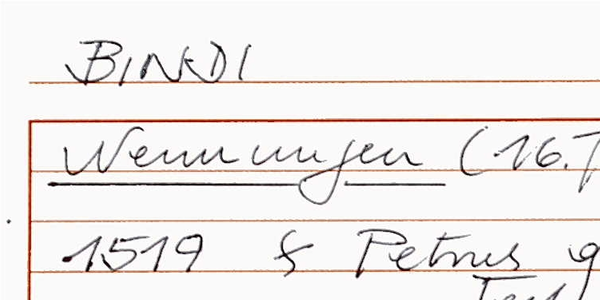 BINDI
Nennungen (16.
1519 & Petrus